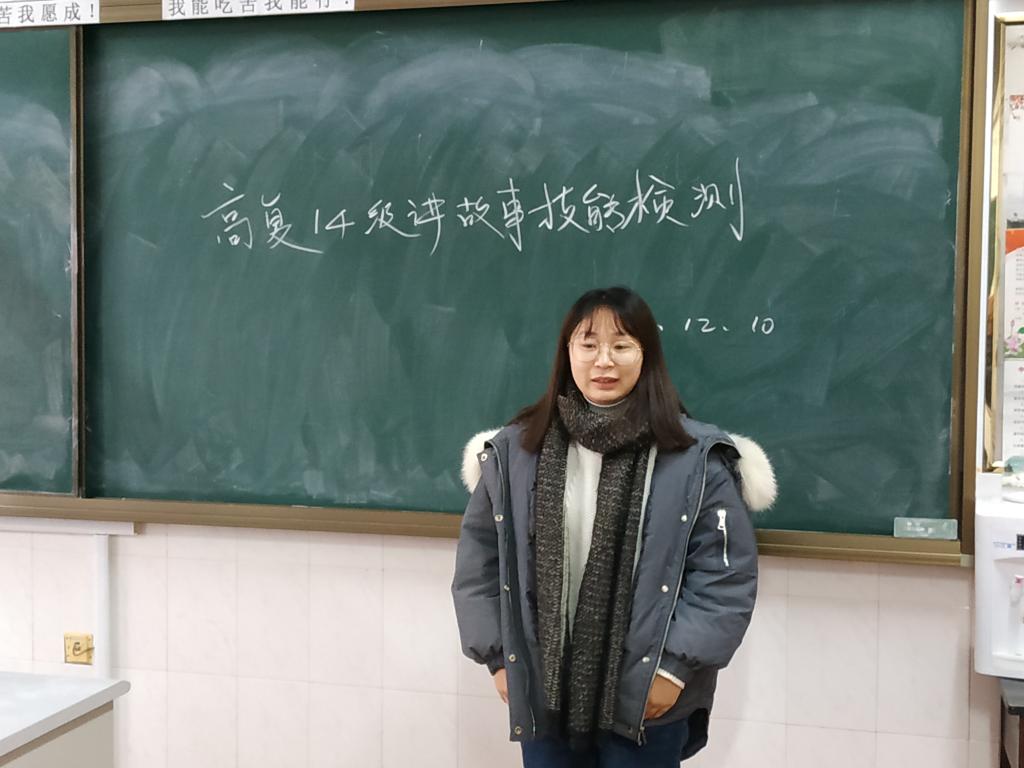 苦我愿成！
我能吃苦我能行！
高复14级讲故事技能检测
. 12. 10